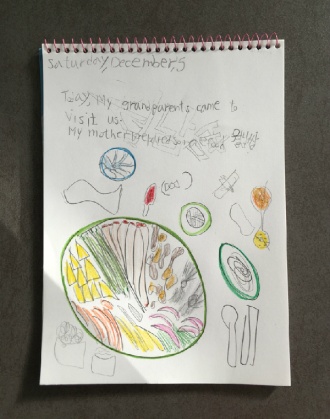 Saturday, December 5
Toay, My grandparents came to
visit us.
My mother prepared some